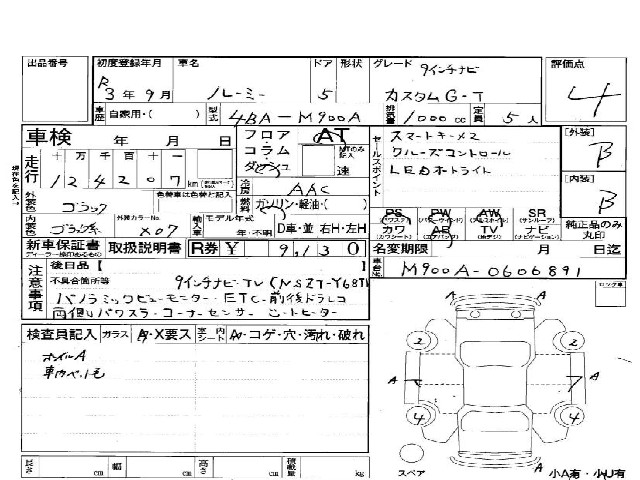 出品番号 初度登録年月 車名 ドア 形状 グレード 9インチナビ 評価点
R 3年9月 ルーミー 5 カスタムG-T 4
車歴 自家用・( ) 型式 4BA-M900A 排気量 1000cc 定員 5人
車検 年 月 日 フロア AT セールスポイント スマートキー×2 [外装] B
コラム MTのみ記入 クルーズコントロール
走行 十万千百十一 速 LEDオートライト [内装] B
124207km 冷房 AAC
現在車を記入
外装色 ブラック 色替車は色替と記入 燃料 ガソリン・軽油・( )
内装色 外装カラーNo. X07 輸入車 モデル年式 年・不明 D車・並 右H・左H
PS PW AW SR
カワ AB TV ナビ 純正品のみ丸印
新車保証書 取扱説明書 R券 ¥ 9,130 名変期限 月 日迄
車台No. M900A-0606891
注意事項 後日品【
不具合箇所等 9インチナビTV(NSZT-Y68T)
パノラミックビューモニター・ETC・前後ドラレコ
両側パワスラ・コーナーセンサー シートヒーター
ロング車
検査員記入 ガラス A・X要ス 室内シート A・コゲ・穴・汚れ・破れ
ホイルA
A
2 2
A A
4 4
A
スペア 小A有・小U有
長さ cm 幅 cm 高さ cm 積載量 kg